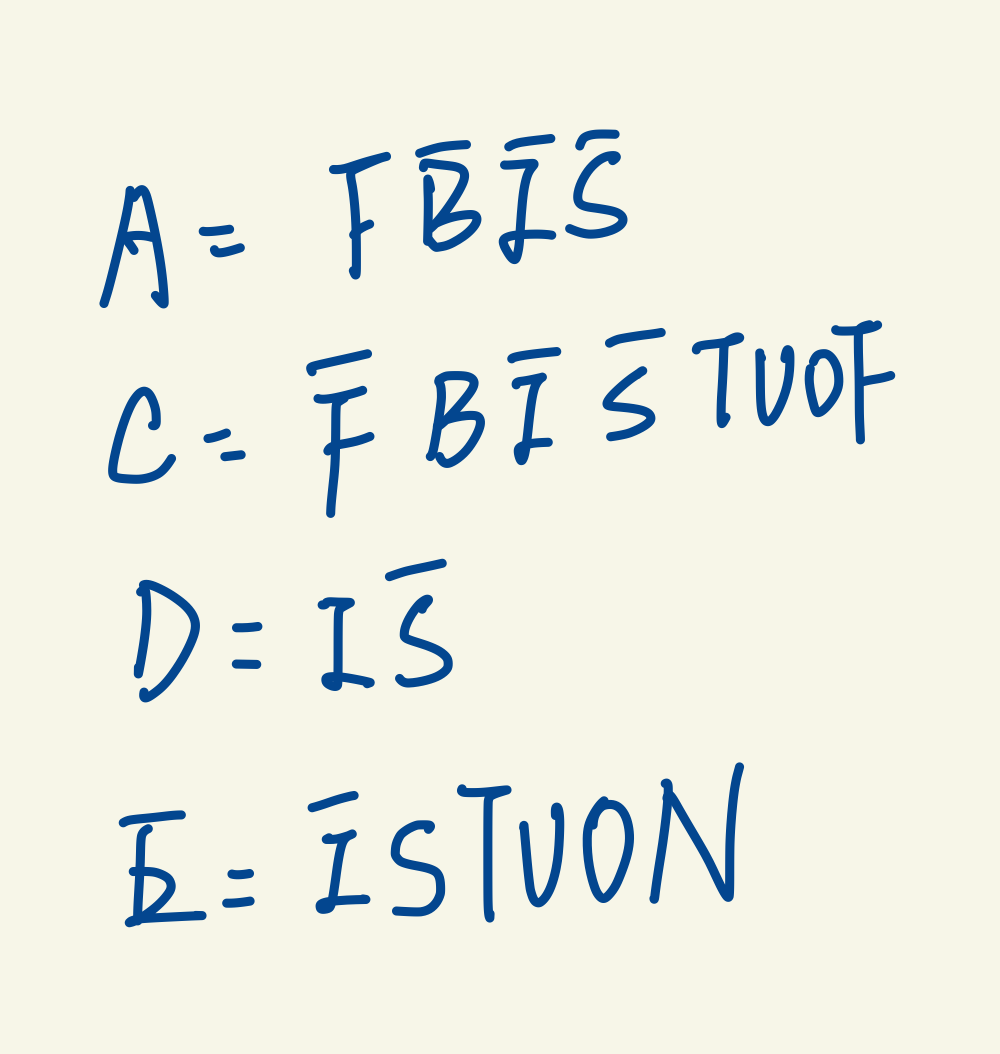 A = F B̅ I̅ S̅
C = F̅ B I̅ S̅ TUOF
D = I S̅
E = I̅ STUON